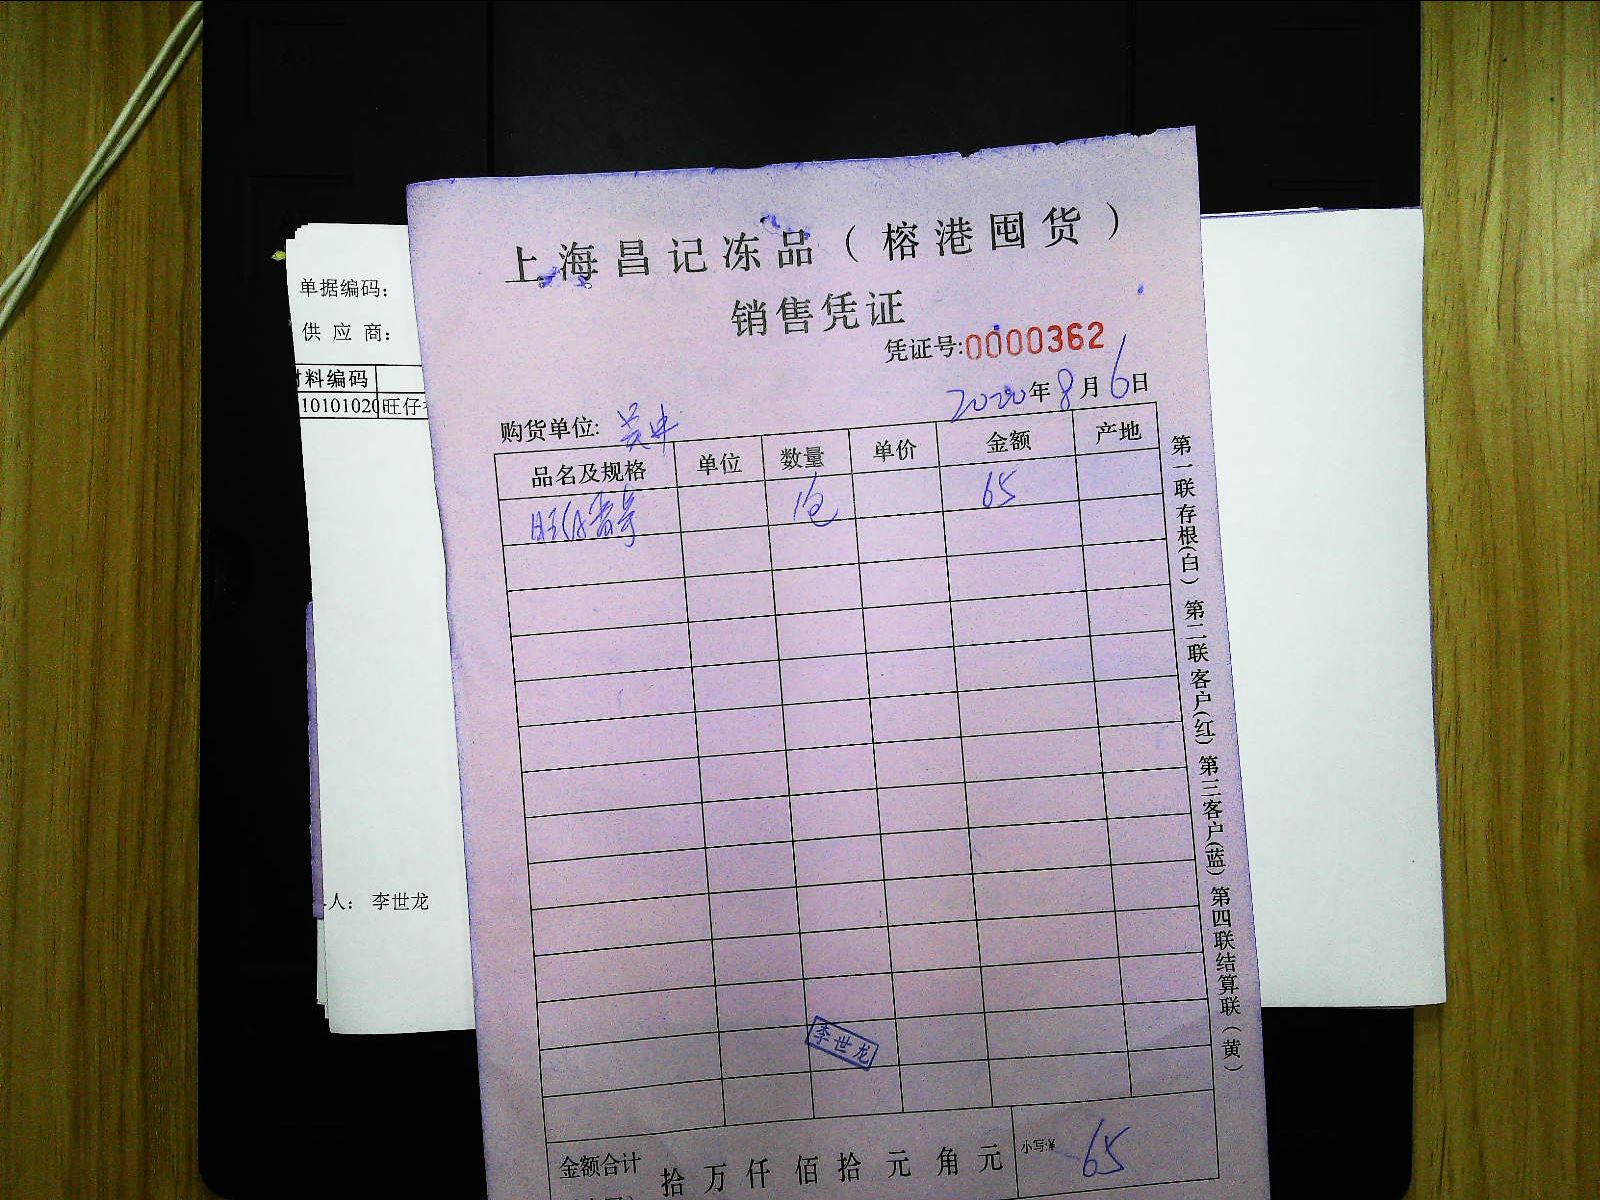 上海昌记冻品（榕港囤货）
销售凭证
凭证号:0000362
2020年8月6日
购货单位: 吴中
品名及规格 单位 数量 单价 金额 产地
旺仔 1包 65
李世龙
金额合计 拾 万 仟 佰 拾 元 角 元 小写:¥ 65
第一联存根(白) 第二联客户(红) 第三客户(蓝) 第四联结算联(黄)
单据编码:
供 应 商:
材料编码
10101020 旺仔
人: 李世龙